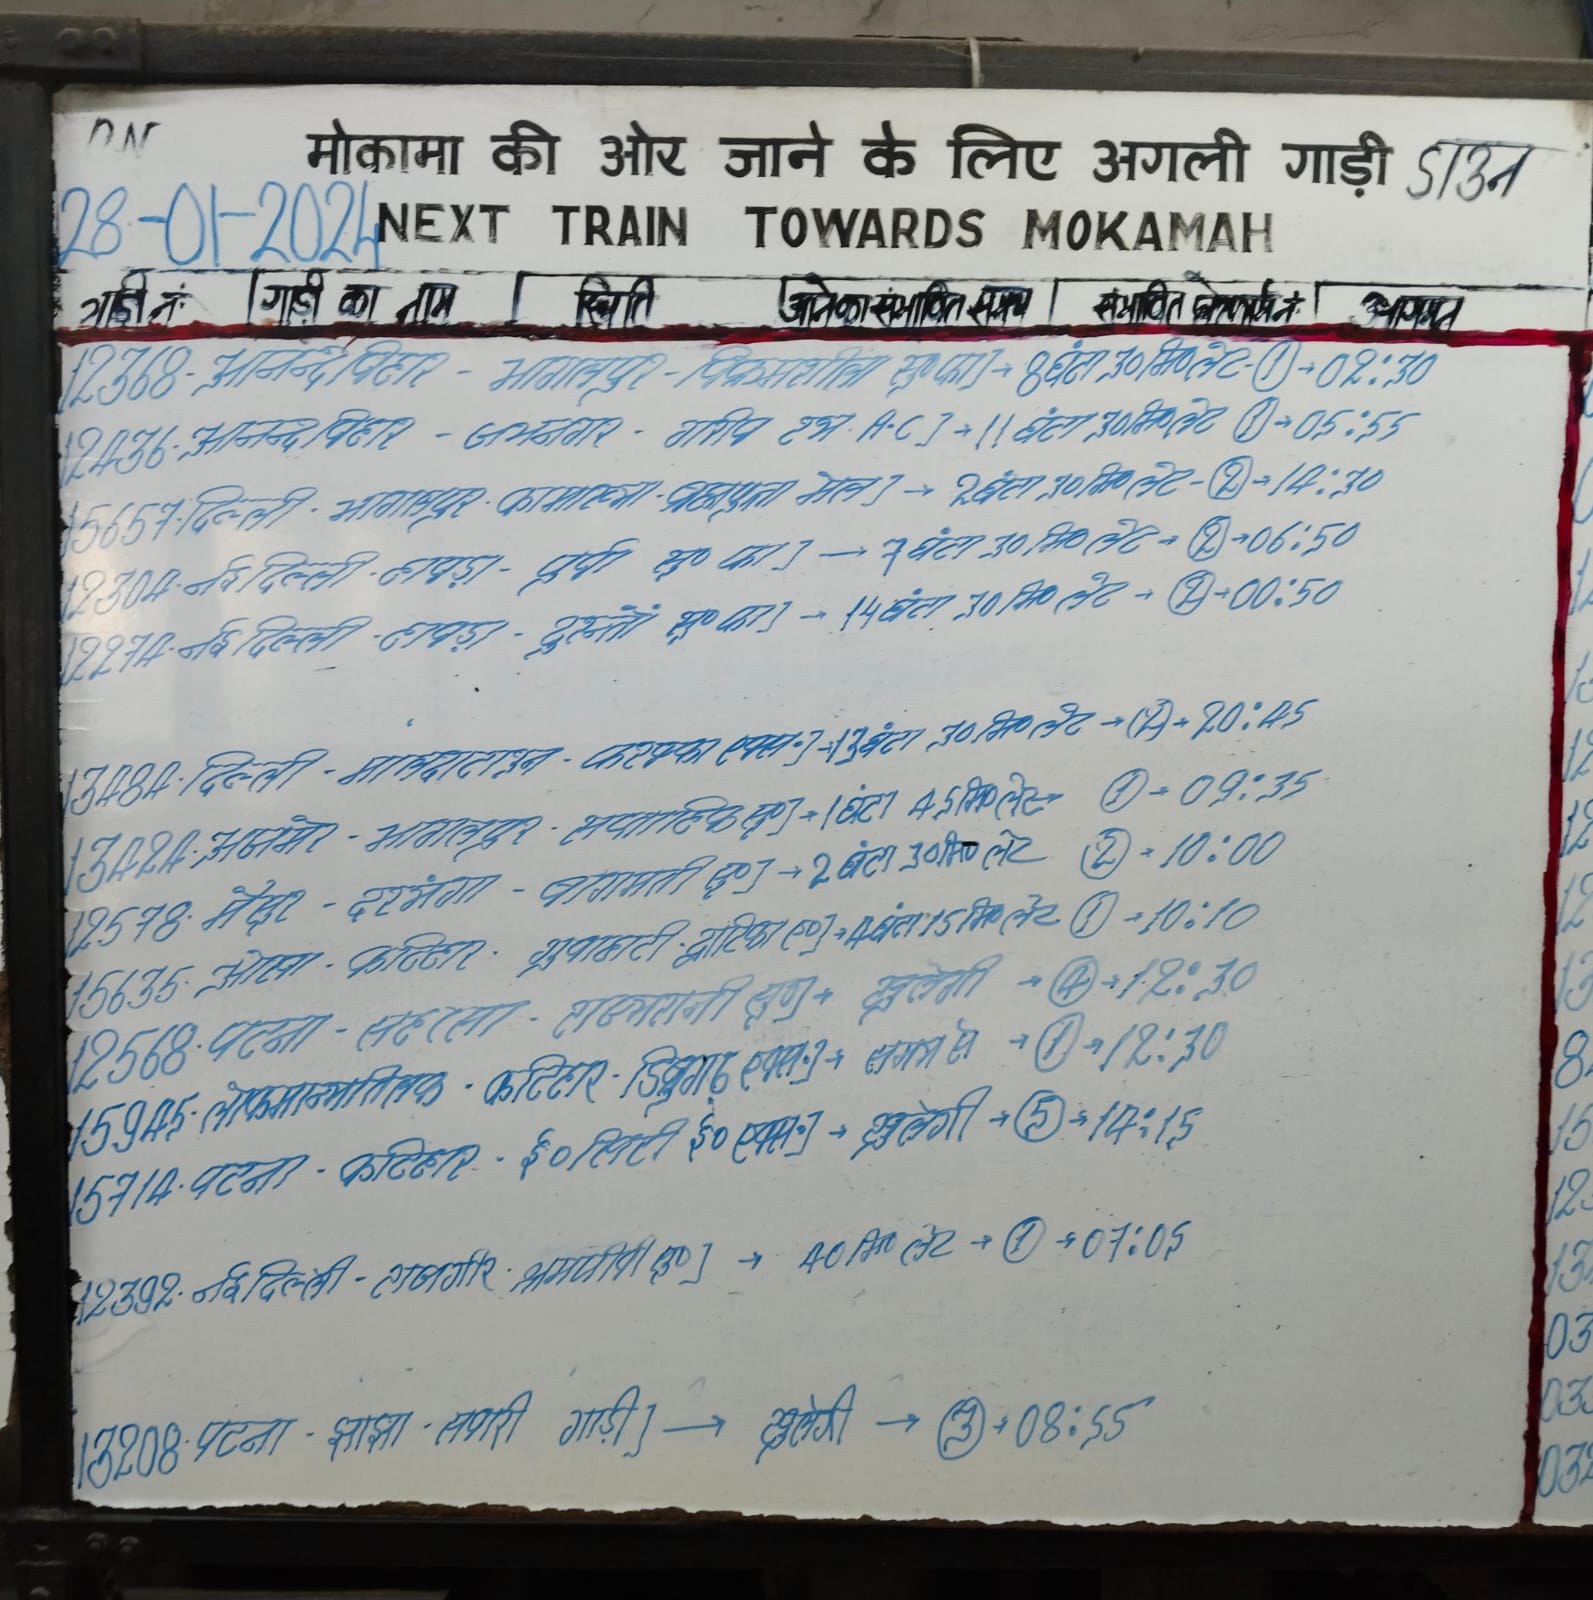 DN
मोकामा की ओर जाने के लिए अगली गाड़ी डाउन
28-01-2024 NEXT TRAIN TOWARDS MOKAMAH
गाड़ी नं: गाड़ी का नाम स्थिति आनेका संभावित समय संभावित प्लेटफार्म नं: आगमन
12368. आनन्द विहार - भागलपुर - विक्रमशीला सु० फा] → 8 घंटा 30 मि० लेट - ① → 02:30
12436. आनन्द विहार - जयनगर - गरीब रथ A.C] → 11 घंटा 30 मि० लेट ① → 05:55
15657. दिल्ली - भागलपुर - कामाख्या - ब्रह्मपुत्रा मेल] → 2 घंटा 30 मि० लेट - ② → 14:30
12304. नई दिल्ली - हावड़ा - पूर्वा सु० फा] → 7 घंटा 30 मि० लेट → ② → 06:50
12274. नई दिल्ली - हावड़ा - दुरन्तो सु० फा] → 14 घंटा 30 मि० लेट → ② → 00:50
13484. दिल्ली - मालदा टाउन - फरक्का एक्स०] → 13 घंटा 30 मि० लेट → ② → 20:45
13424. अजमेर - भागलपुर - सप्ताहिक ए०] → 1 घंटा 45 मि० लेट → ① - 09:35
12578. मैसूर - दरभंगा - बागमती ए०] → 2 घंटा 30 मि० लेट ② - 10:00
15635. ओखा - कटिहार - गुवाहाटी - द्वारिका ए०] → 4 घंटा 15 मि० लेट ① → 10:10
12568. पटना - सहरसा - राज्यरानी सु० → खुलेगी → ④ → 12:30
15945. लोकमान्यतिलक - कटिहार - डिब्रुगढ़ एक्स०] → समय से → ① → 12:30
15714. पटना - कटिहार - ई० सिटी ई० एक्स०] → खुलेगी → ⑤ → 14:15
12392. नई दिल्ली - राजगीर - श्रमजीवी सु०] → 40 मि० लेट → ① → 07:05
13208. पटना - झाझा - सवारी गाड़ी] → खुलेगी → ③ → 08:55